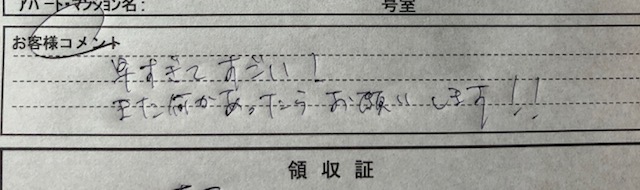 アパート・マンション名: 号室
お客様コメント
早すぎてすごい!
また何かあったらお願いします!!
領収証